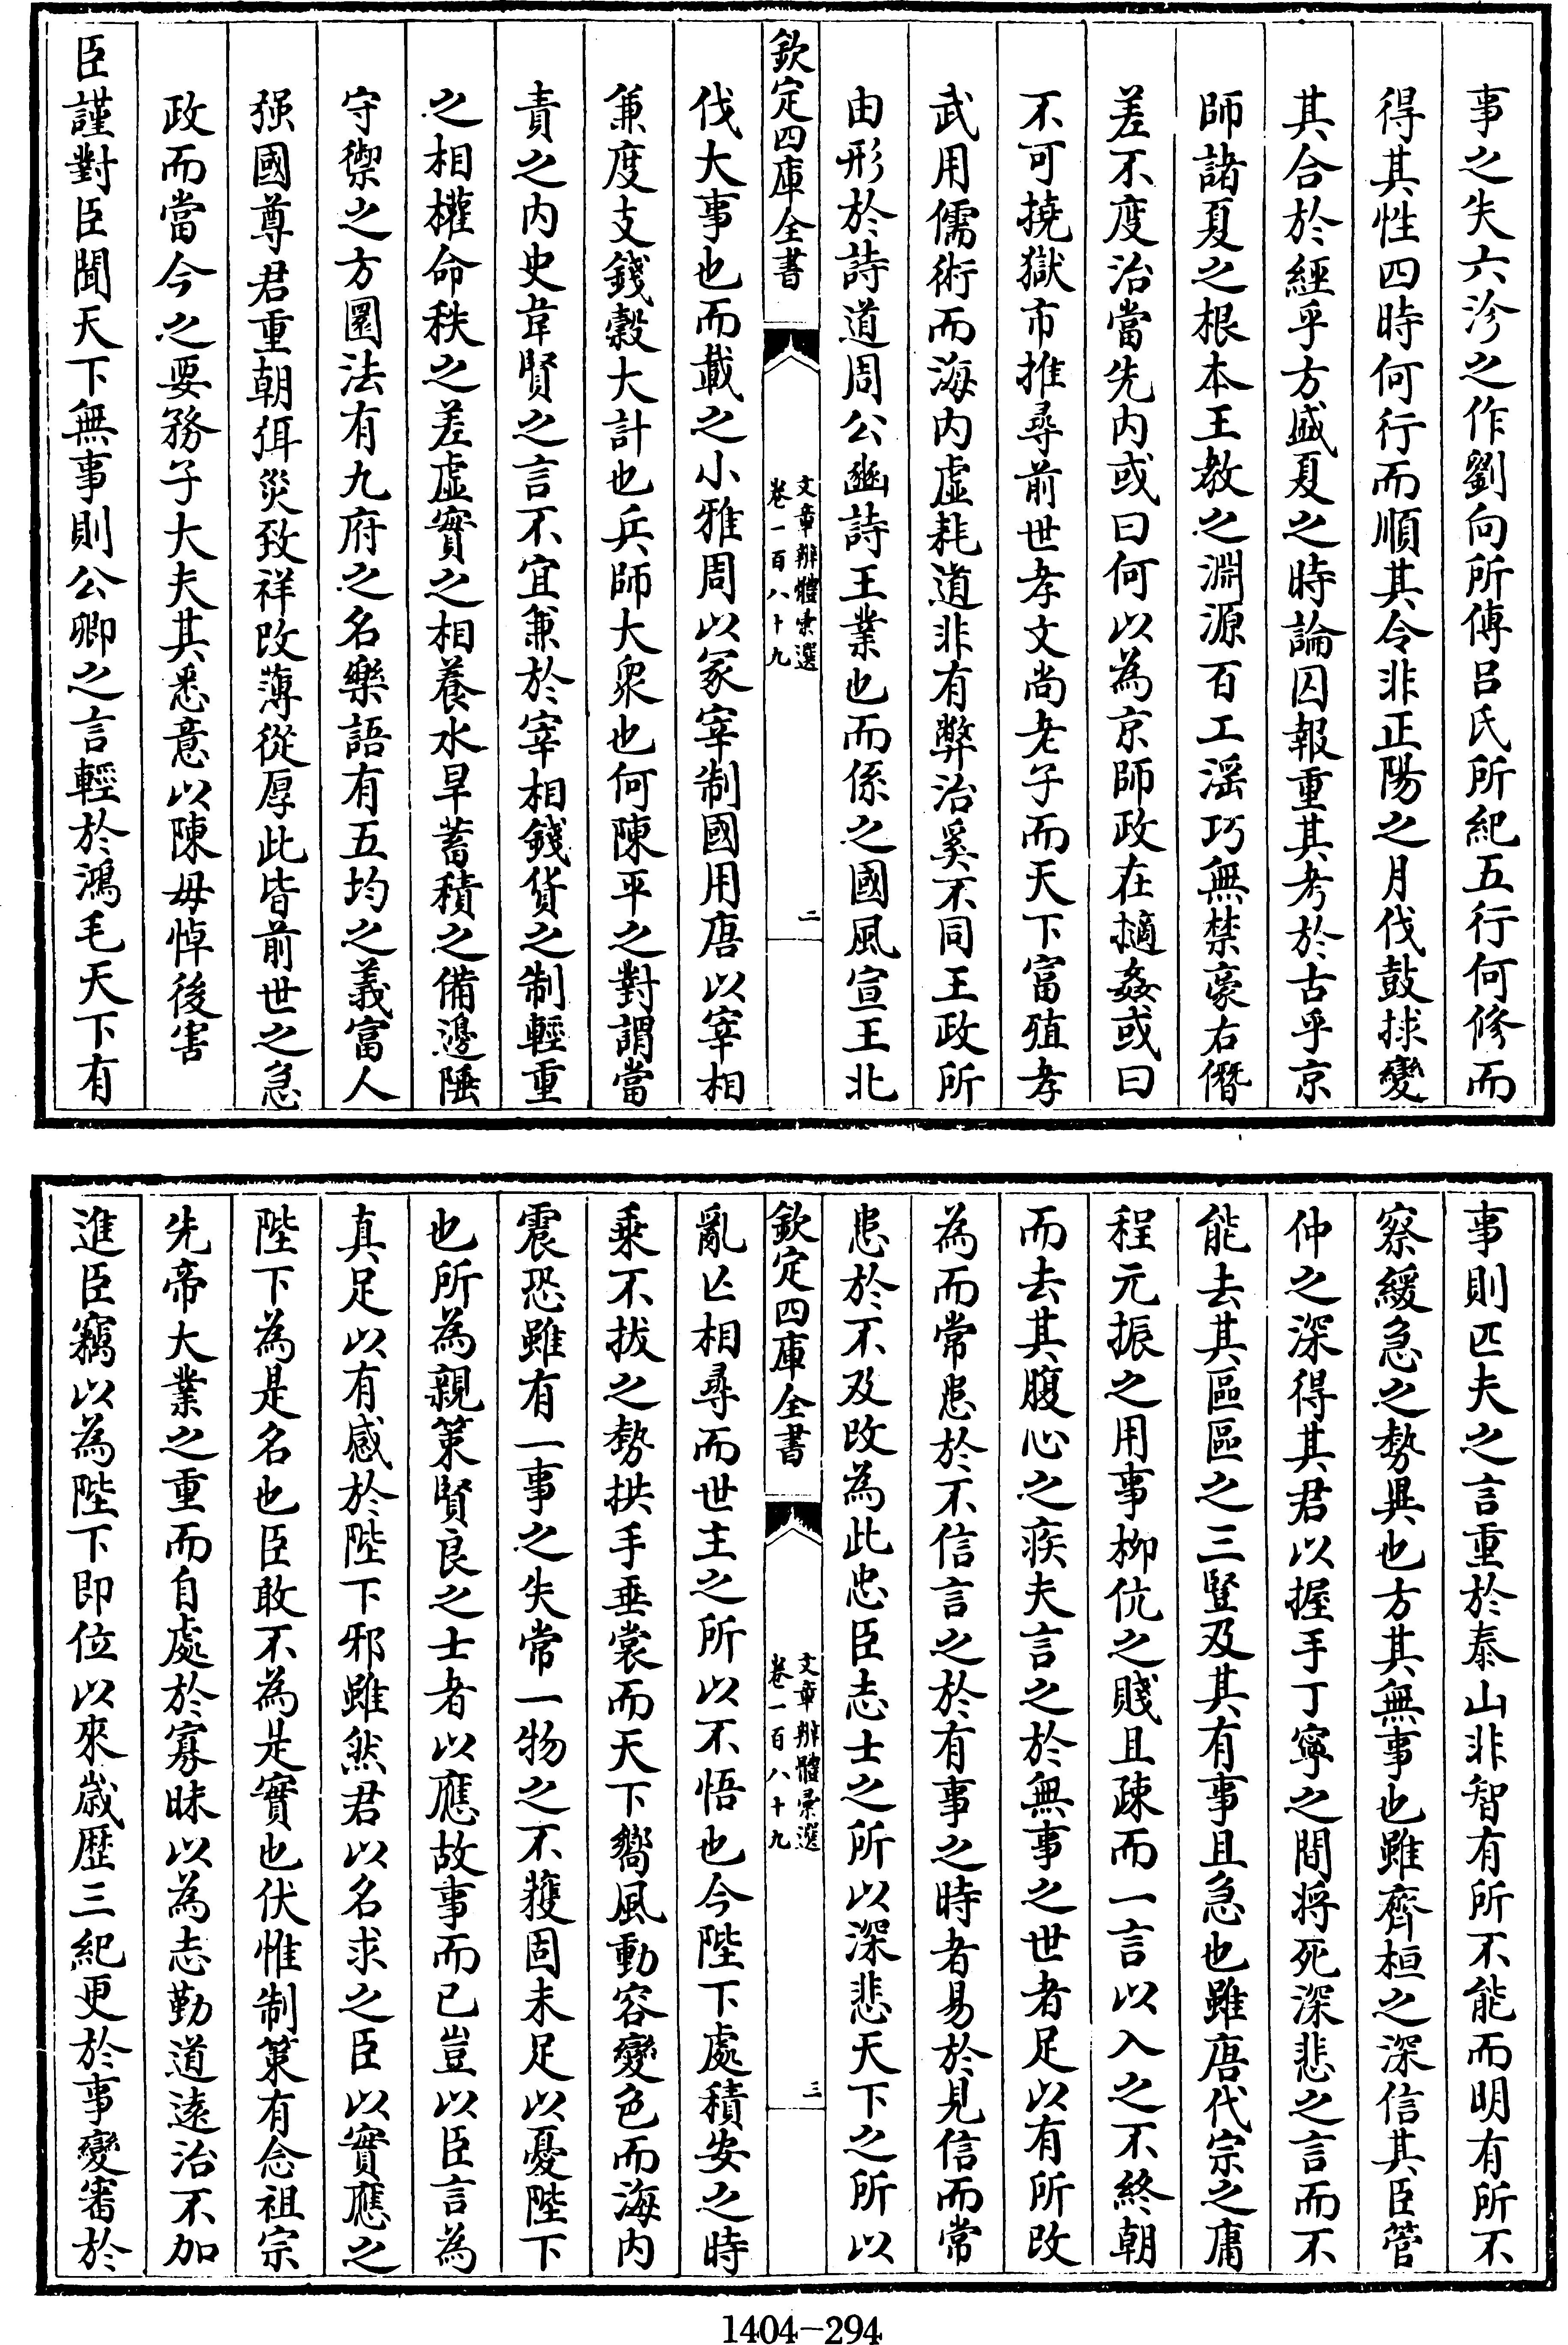 事之失六沴之作劉向所傳吕氏所紀五行何修而
得其性四時何行而順其令非正陽之月伐鼓捄變
其合於經乎方盛夏之時論囚報重其考於古乎京
師諸夏之根本王教之淵源百工滛巧無禁豪右僭
差不度治當先内或曰何以為京師政在擿姦或曰
不可撓獄市推尋前世孝文尚老子而天下富殖孝
武用儒術而海内虚耗道非有弊治奚不同王政所
由形於詩道周公豳詩王業也而係之國風宣王北
欽定四庫全書
文章辨體彚選
卷一百八十九
二
伐大事也而載之小雅周以冢宰制國用唐以宰相
兼度支錢穀大計也兵師大衆也何陳平之對謂當
責之内史韋賢之言不宜兼於宰相錢貨之制輕重
之相權命秩之差虚實之相養水旱蓄積之備邊陲
守禦之方圜法有九府之名樂語有五均之義富人
强國尊君重朝弭災致祥改薄從厚此皆前世之急
政而當今之要務子大夫其悉意以陳毋悼後害
臣謹對臣聞天下無事則公卿之言輕於鴻毛天下有
事則匹夫之言重於泰山非智有所不能而明有所不
察緩急之勢異也方其無事也雖齊桓之深信其臣管
仲之深得其君以握手丁寧之間将死深悲之言而不
能去其區區之三豎及其有事且急也雖唐代宗之庸
程元振之用事柳伉之賤且疎而一言以入之不終朝
而去其腹心之疾夫言之於無事之世者足以有所改
為而常患於不信言之於有事之時者易於見信而常
患於不及改為此忠臣志士之所以深悲天下之所以
欽定四庫全書
文章辨體彚選
卷一百八十九
三
亂亡相尋而世主之所以不悟也今陛下處積安之時
乗不拔之勢拱手垂裳而天下嚮風動容變色而海内
震恐雖有一事之失常一物之不獲固未足以憂陛下
也所為親策賢良之士者以應故事而已豈以臣言為
真足以有感於陛下邪雖然君以名求之臣以實應之
陛下為是名也臣敢不為是實也伏惟制策有念祖宗
先帝大業之重而自處於寡昧以為志勤道逺治不加
進臣竊以為陛下即位以來歲歴三紀更於事變審於
1404-294